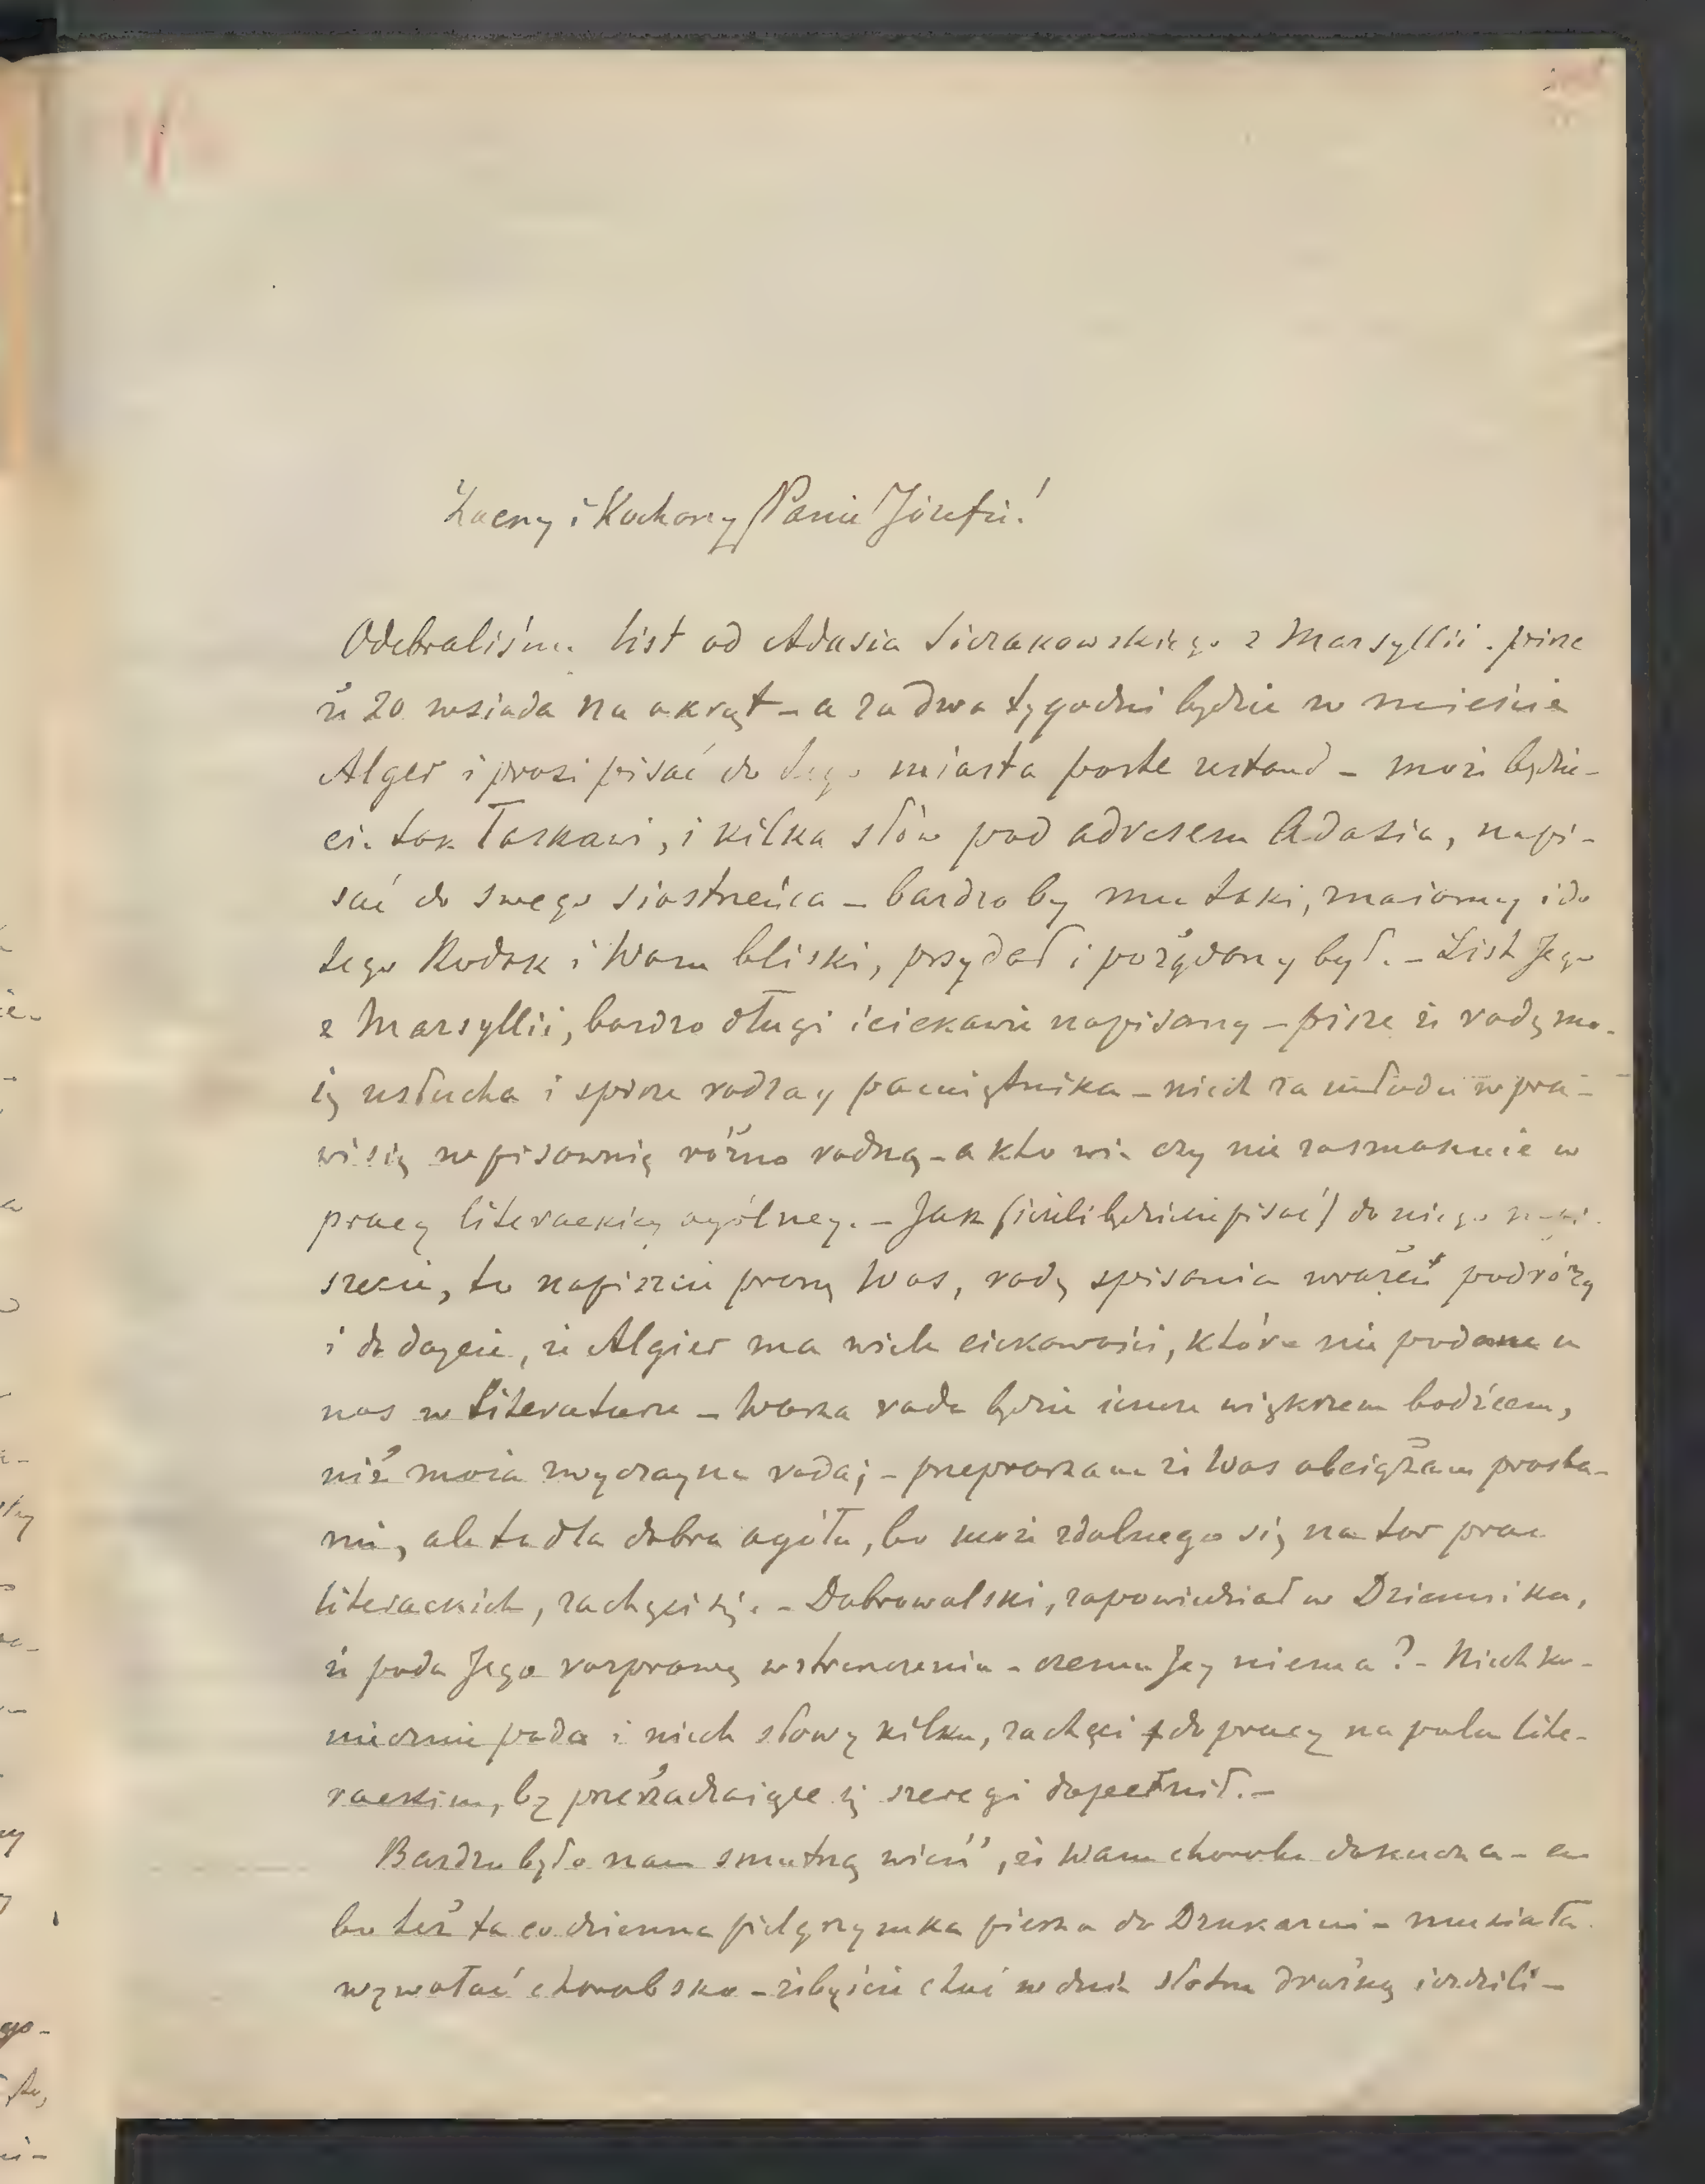 Zacny i Kochany Panie Józefie!
Odebraliśmy list od Adasia Sierakowskiego z Marsyllii. pisze
że 20 wsiada na okręt – a za dwa tygodni będzie w mieście
Alger i prosi pisać do tego miasta poste restand – może będzie-
cie tak łaskawi, i kilka słów pod adresem Adasia, napi-
sać do swego siostrzeńca – bardzo by mu taki, znaiomy i do
tego Rodak i Wam bliski, przydał i pożądany był. – List Jego
z Marsyllii, bardzo długi i ciekawie napisany – pisze że radę mo-
ię usłucha i spisze rodzay pamiętnika – niech za młodu wpra-
wi się w pisownię różno rodną – a kto wie czy nie zasmakuie w
pracy literackiey ogólney. – Jak (ieżeli będziecie pisać) do niego napi-
szecie, to napiszcie proszę Was, radę spisania wrażeń podróży
i dodaycie, że Algier ma wiele ciekawości, które nie podane u
nas w literaturze – Wasza rada będzie ieszcze większem bodźcem,
niż moia zwyczayna rada; – przepraszam że Was obciążam prośba-
mi, ale to dla dobra ogółu, bo może zdolnego się na tor prac
literackich, zachęci się. – Dobrowolski, zapowiedział w Dzienniku,
że poda Jego rozprawę w streszczeniu – czemu Jey niema? – Niech ko-
niecznie poda i niech słowy kilku, zachęci do pracy na polu lite-
rackiem, by przerzadzaiące się szeregi dopełnił. –
Bardzo było nam smutną wieść, że Wam choroba dokucza – a
bo też ta codzienna pielgrzymka piesza do Drukarni – musiała
wywołać chorobsko – żebyście choć w dnie słotne drożką ieździli –